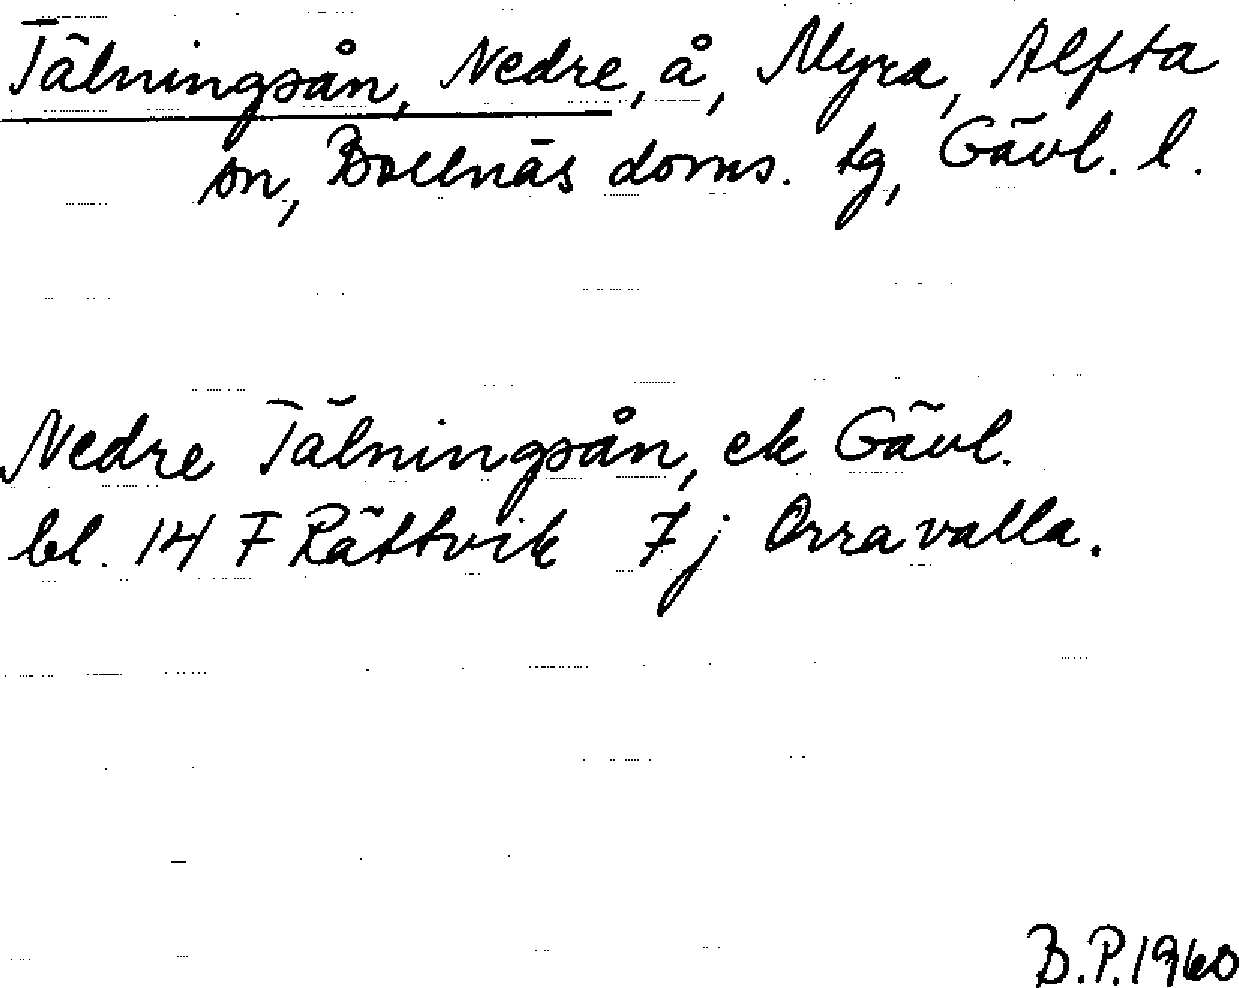 Tälningsån, Nedre, å, Myra, Alfta
sn, Bollnäs doms. tg, Gävl. l.
Nedre Tälningsån, ek Gävl.
bl. 14 F Rättvik 7j Orravalla.
B.P. 1960